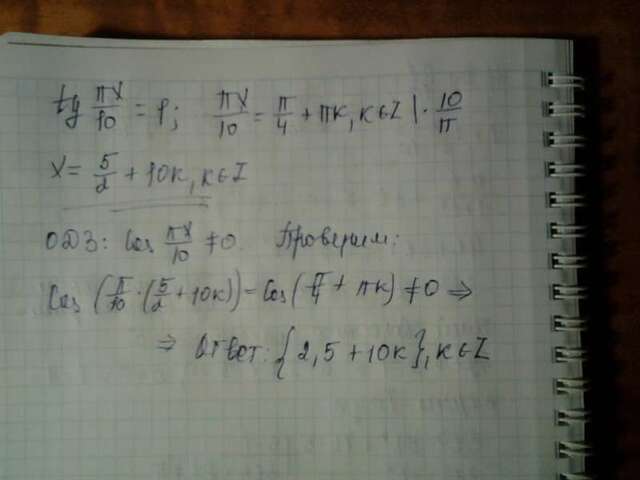 tg πx/10 = 1; πx/10 = π/4 + πк, к∈Z | · 10/π
x = 5/2 + 10к, к∈Z
ОДЗ: cos πx/10 ≠ 0. Проверим:
cos (π/10 · (5/2 + 10к)) = cos (π/4 + πк) ≠ 0 ⇒
⇒ Ответ: {2,5 + 10к}, к∈Z